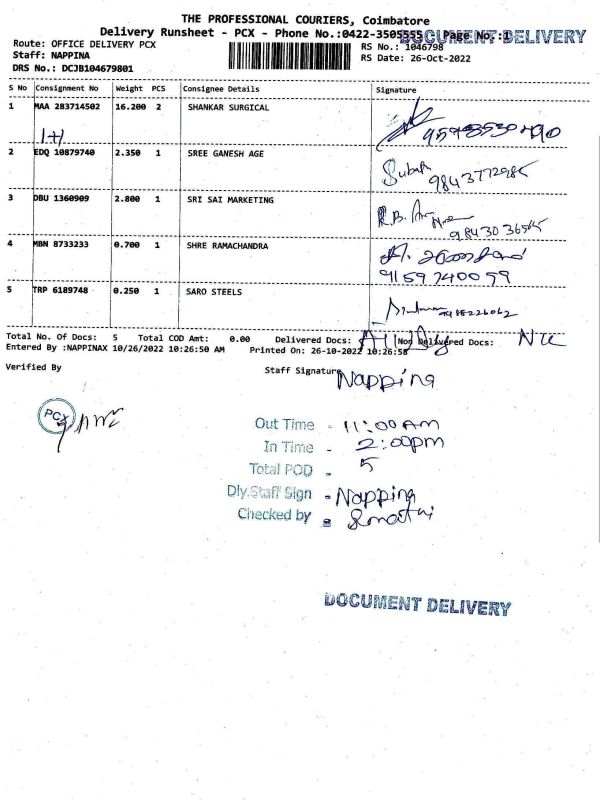 THE PROFESSIONAL COURIERS, Coimbatore
Delivery Runsheet - PCX - Phone No.:0422-3505555 Page No.:1
DOCUMENT DELIVERY
Route: OFFICE DELIVERY PCX
RS No.: 1046798
Staff: NAPPINA
RS Date: 26-Oct-2022
DRS No.: DCJB104679801
S No Consignment No Weight PCS Consignee Details Signature
1 MAA 283714502 16.200 2 SHANKAR SURGICAL
1+1
2 EDQ 10879740 2.350 1 SREE GANESH AGE
9843772985
3 DBU 1360909 2.800 1 SRI SAI MARKETING
R.B.
9843036565
4 MBN 8733233 0.700 1 SHRE RAMACHANDRA
9159740059
5 TRP 6189748 0.250 1 SARO STEELS
Total No. Of Docs: 5 Total COD Amt: 0.00 Delivered Docs: All Dly Non Delivered Docs: Nil
Entered By :NAPPINAX 10/26/2022 10:26:50 AM Printed On: 26-10-2022 10:26:58
Verified By
Staff Signature Nappina
PCX
Out Time - 11:00AM
In Time - 2:00pm
Total POD - 5
Dly.Staff Sign - Nappina
Checked by -
DOCUMENT DELIVERY